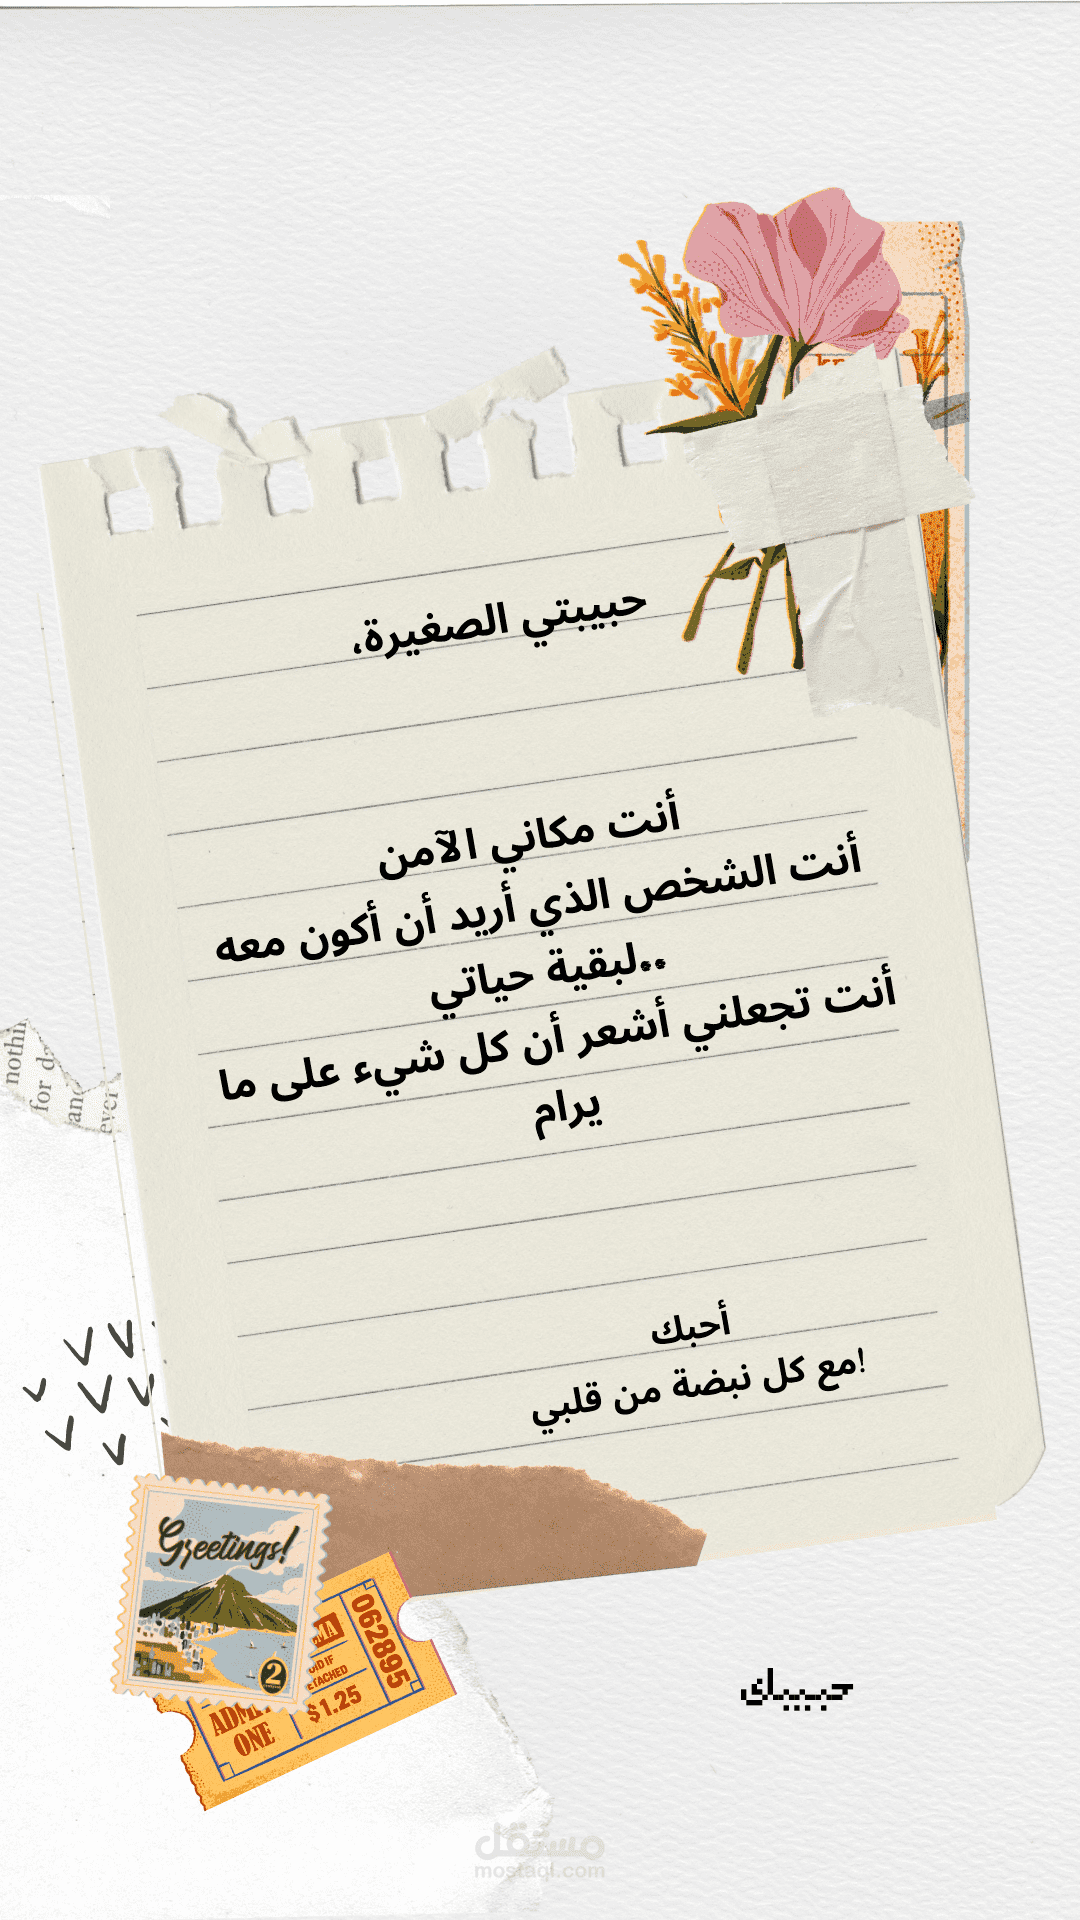 حبيبتي الصغيرة،
أنت مكاني الآمن
أنت الشخص الذي أريد أن أكون معه
..لبقية حياتي
أنت تجعلني أشعر أن كل شيء على ما
يرام
أحبك
!مع كل نبضة من قلبي
nothi
for d
and
ever
Greetings!
2
062895
$1.25
ADMIT
ONE
حبيبك
مستقل
mostaql.com